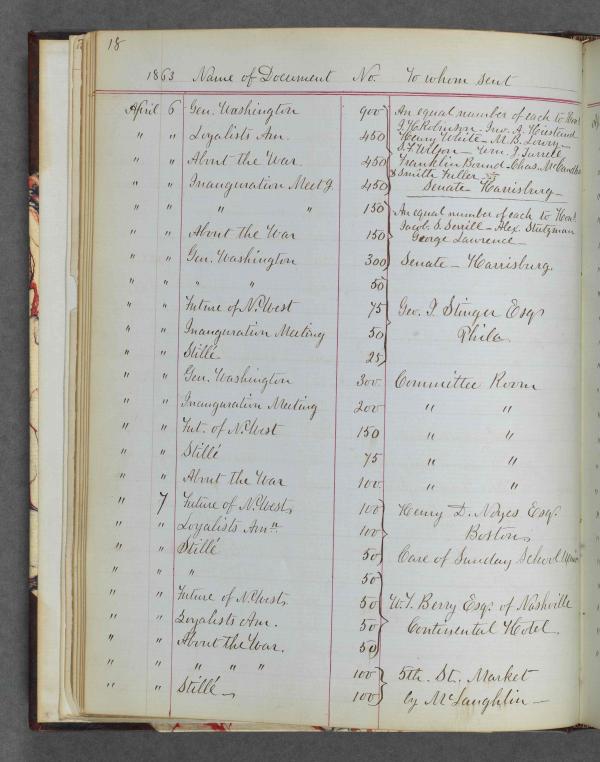 18
1863 Name of Document No. To whom sent
April 6 Gen. Washington 900 An equal number of each to Hon.
" " Loyalists Am. 450 Henry White - M. B. Lowry -
" " About the War 450 Franklin Bound - Chas. McCandless
" " Inauguration Meet'g. 450 & Smith Fuller
Senate Harrisburg
" " " " 150 An equal number of each to Hon.
" " About the War 150 Jacob. S. Serrill - Alex. Stutzman
George Lawrence
" " Gen. Washington 300 Senate - Harrisburg.
" " " " 50
" " Future of N. West 75 Geo. F. Stinger Esqr
" " Inauguration Meeting 50 Phila
" " Stillé 25
" " Gen. Washington 300 Committee Room
" " Inauguration Meeting 200 " "
" " Fut. of N. West 150 " "
" " Stillé 75 " "
" " About the War 100 " "
" 7 Future of N. West, 100 Henry D. Noyes Esqr.
" " Loyalists Amn. 100 Boston,
" " Stillé 50 Care of Sunday School Union
" " " 50
" " Future of N. West, 50 W. T. Berry Esqr. of Nashville
" " Loyalists Am. 50 Continental Hotel.
" " About the War. 50
" " " " " 100 5th. St. Market
" " Stillé 100 by McLaughlin